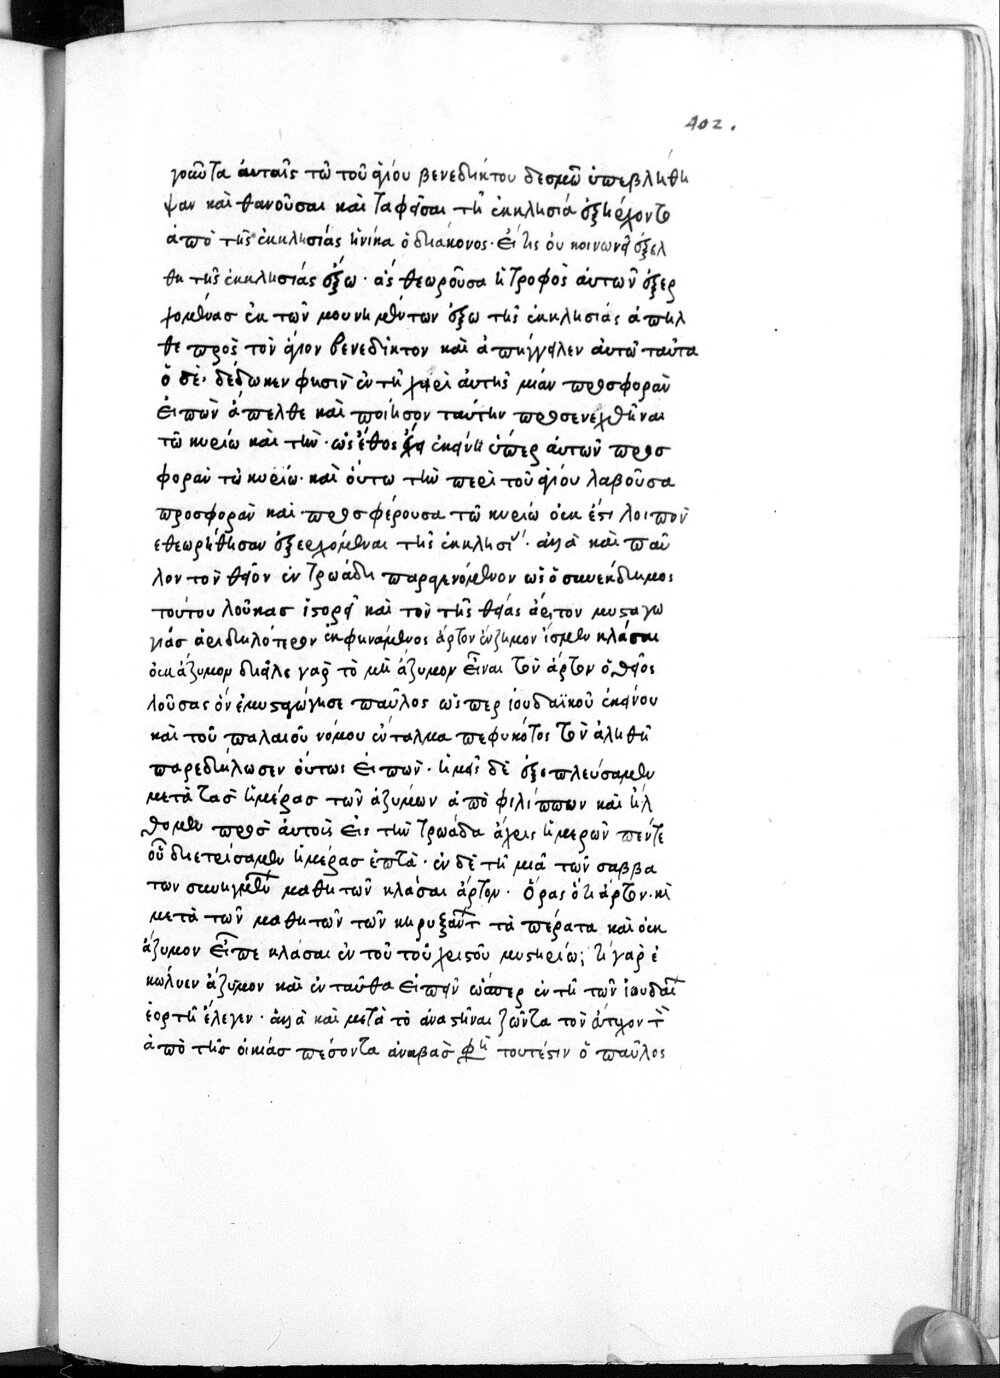 402.
γραῦτα ἀυταῖς τῶ τοῦ ἁγίου βενεδίκτου δεσμῶ ὑπεβλήθη
ψαν καὶ θανοῦσαι καὶ ταφεῖσαι τῆ ἐκκλησία ἐξήρχοντο
ἀπὸ τῆς ἐκκλησίας ἡνίκα ὁ διάκονος· εἴ τις ὀυ κοινωνεῖ ἐξελ
θη τῆς ἐκκλησίας ἔξω· ἃς θεωροῦσα ἡ τροφὸς ἀυτῶν ἐξερ
χομένας ἐκ τῶν μουνημέντων ἔξω τῆς ἐκκλησίας ἀπῆλ
θε πρὸς τὸν ἅγιον βενεδίκτον καὶ ἀπήγγειλεν ἀυτῶ ταῦτα
ὁ δὲ· δέδωκεν φησὶν ἐν τῆ χειρὶ ἀυτῆς μιὰν προσφορὰν
ἐιπὼν ἄπελθε καὶ ποίησον ταύτην προσενεχθῆναι
τῶ κυρίω καὶ τὴν· ὡς ἔθος ἐκείνη ὑπὲρ ἀυτῶν προσ
φορὰν τῶ κυρίω· καὶ ὅυτω τὴν περὶ τοῦ ἁγίου λαβοῦσα
προσφορὰν καὶ προσφέρουσα τῶ κυρίω ὀυκ ἔτι λοιπὸν
εθεωρήθησαν ἐξερχόμεναι τῆς ἐκκλησίας· ἀλλὰ καὶ παῦ
λον τὸν θεῖον ἐν τρωάδη παραγενόμενον ὡς ὁ συνέκδημος
τούτου λουκᾶς ἱστορεῖ καὶ τὸν τῆς θείας ἄρτον μυσταγω
γίας ἀριδηλότερον ἐκφηνάμενος ἄρτον ἔνζημον ἴσμεν κλάσαι
ὀυκ ἄζυμον δηεῖλε γὰρ τὸ μὴ ἄζυμον εἶναι τὸν ἄρτον ὁ θεῖος
λουκᾶς ὃν ἐμυσταγώγησε παῦλος ὥσπερ ἰουδαϊκοῦ ἐκείνου
καὶ τοῦ παλαιοῦ νόμου ἔνταλμα πεφυκότος τὸν ἀληθῆ
παρεδήλωσεν ὅυτως ἐιπὼν· ἡμεῖς δὲ ἐξεπλεύσαμεν
μετὰ τὰς ἡμέρας τῶν ἀζύμων ἀπὸ φιλίππων καὶ ἤλ
θομεν πρὸς ἀυτοὺς εἰς τὴν τρωάδα ἄχρις ἡμερῶν πέντε
οὗ διετρίσαμεν ἡμέρας ἑπτὰ· ἐν δὲ τῆ μιᾶ τῶν σαββα
των συνηγμένων μαθητῶν κλάσαι ἄρτον· ὅρας ὅτι ἄρτον· καὶ
μετὰ τῶν μαθητῶν τῶν κηρυξάντων τὰ πέρατα καὶ ὀυκ
ἄζυμον εἶπε κλάσαι ἐν τοῦ τοῦ χριστοῦ μυστηρίω; τί γὰρ ἐ
κώλυεν ἄζυμον καὶ ἐν ταῦθα ἐιπεῖν ὥσπερ ἐν τῆ τῶν ἰουδαίων
ἑορτῆ ἔλεγεν· ἀλλὰ καὶ μετὰ τὸ ἀναστῆναι ζῶντα τὸν ἔυτυχον τὸν
ἀπὸ τῆς οἰκίας πεσόντα ἀναβὰς φησὶ τουτέστιν ὁ παῦλος